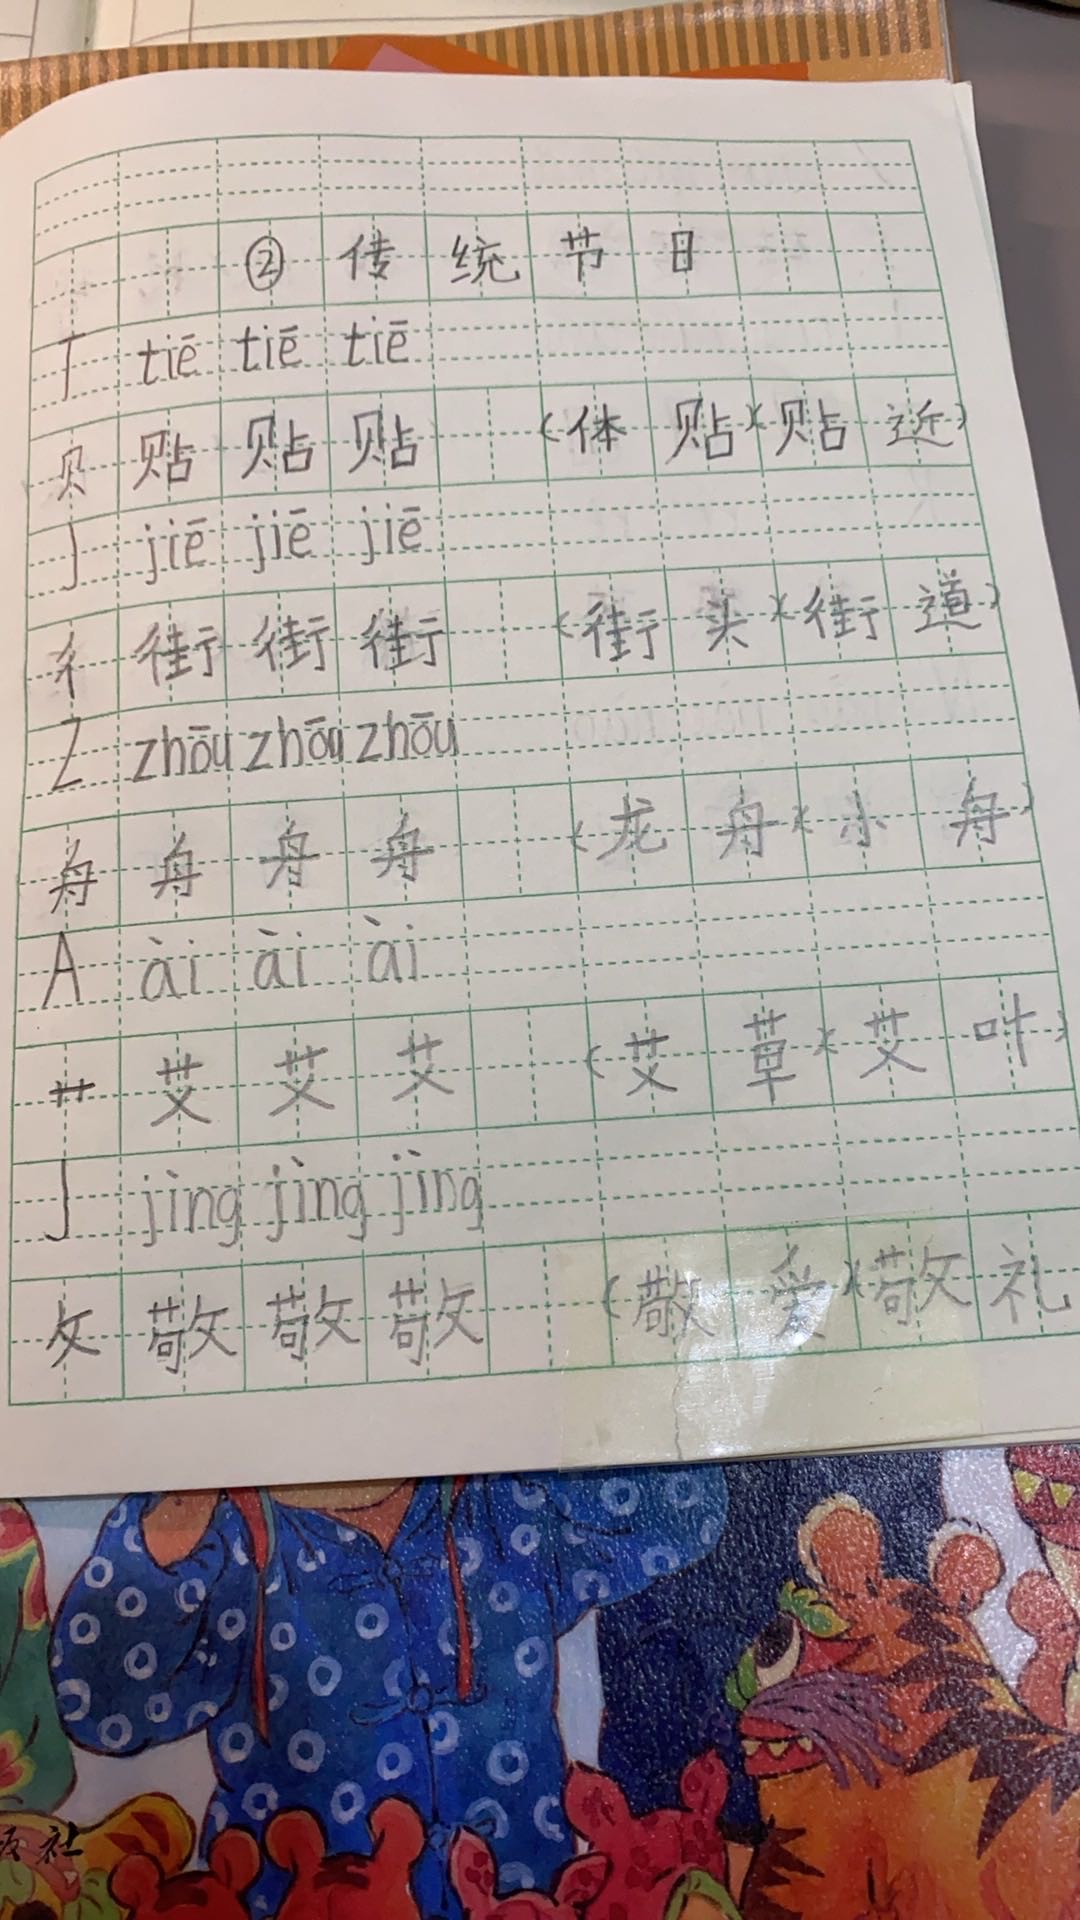 ② 传统节日
T tiē tiē tiē
贝 贴 贴 贴 (体贴)(贴近)
J jiē jiē jiē
彳 街 街 街 (街头)(街道)
Z zhōu zhōu zhōu
舟 舟 舟 舟 (龙舟)(小舟)
A ài ài ài
艹 艾 艾 艾 (艾草)(艾叶)
J jìng jìng jìng
攵 敬 敬 敬 (敬爱)(敬礼
版社